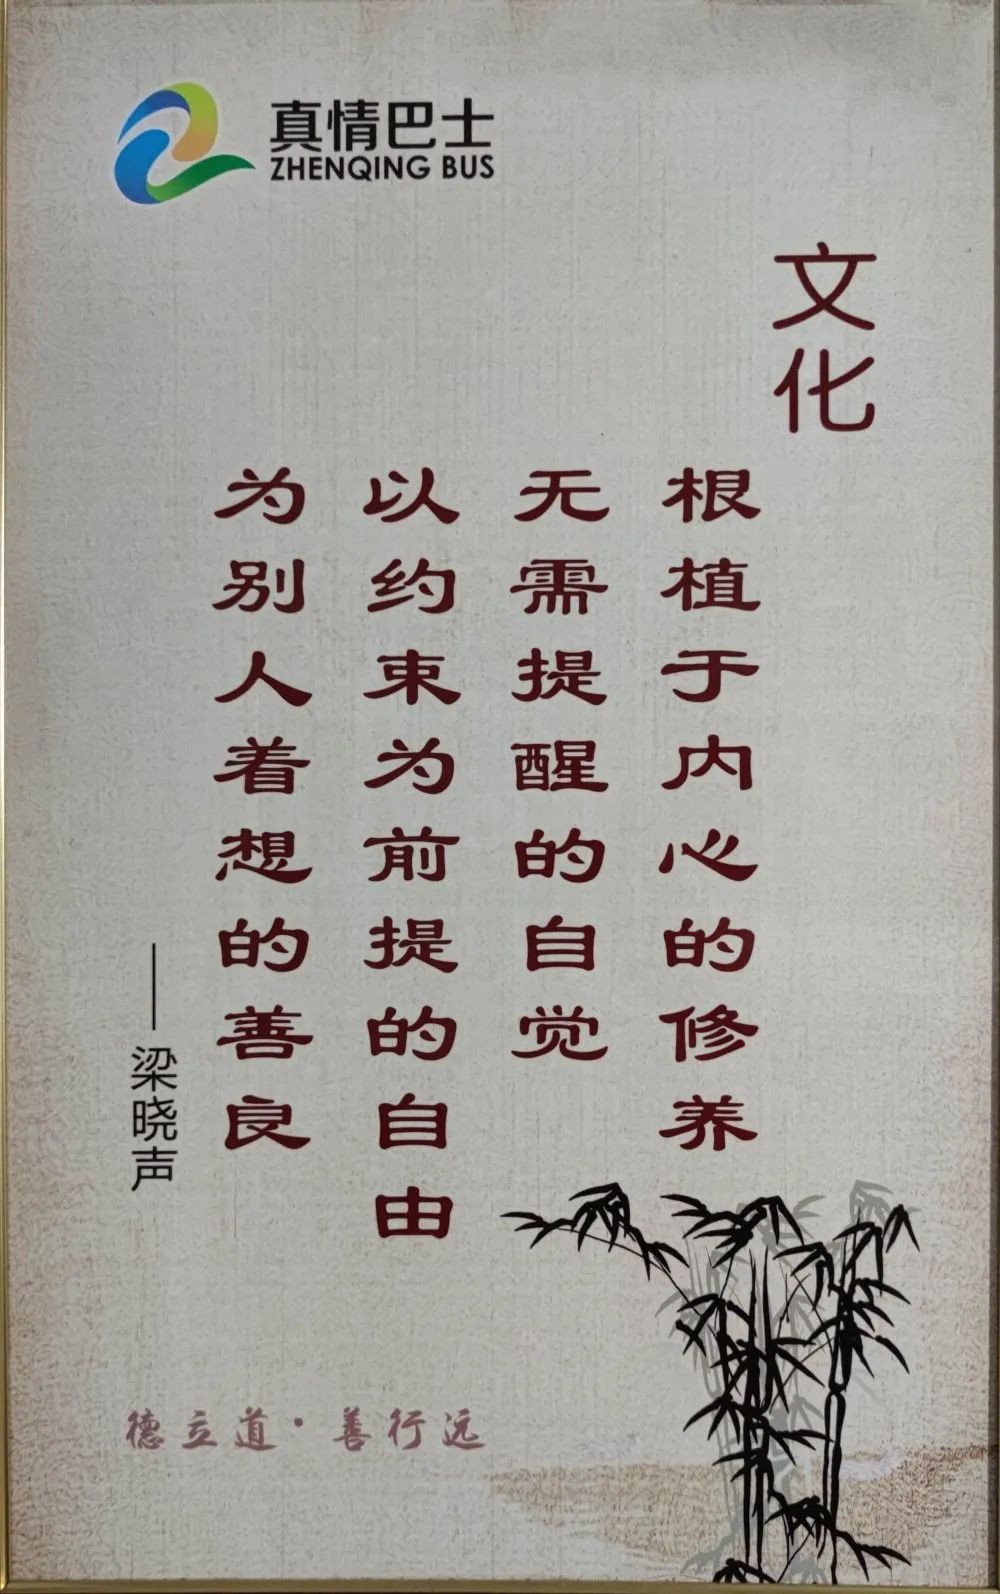 真情巴士
ZHENQING BUS
文化
根植于内心的修养
无需提醒的自觉
以约束为前提的自由
为别人着想的善良
——梁晓声
德立道·善行远